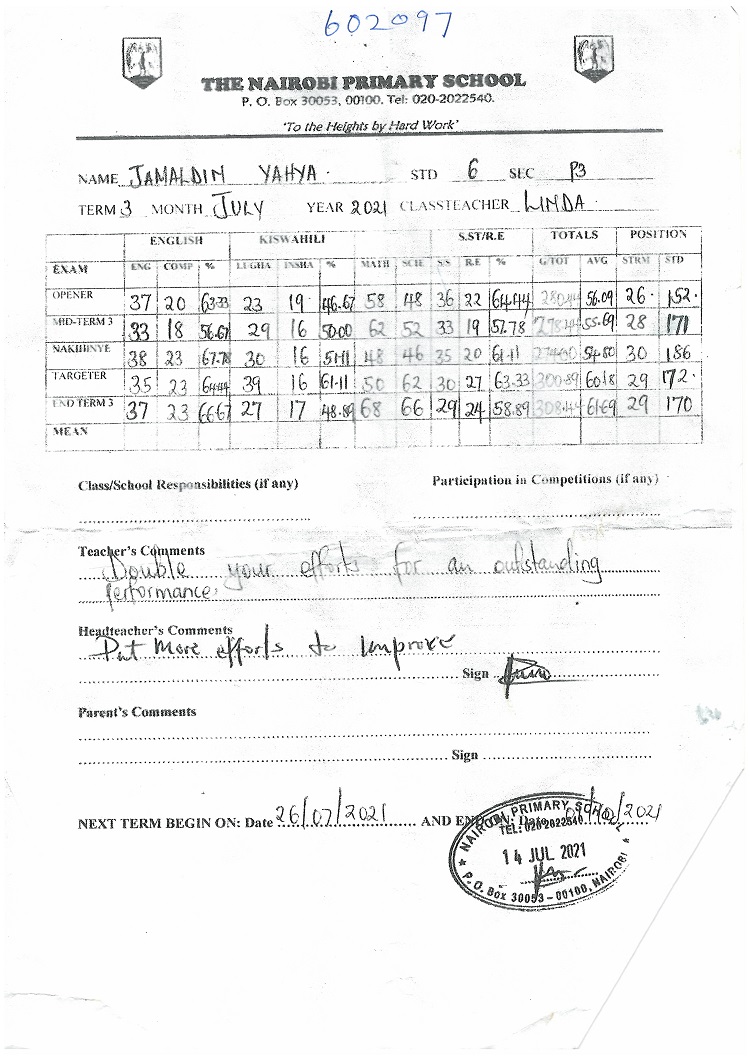 602097
THE NAIROBI PRIMARY SCHOOL
P. O. Box 30053, 00100. Tel: 020-2022540.
'To the Heights by Hard Work'
NAME JAMALDIN YAHYA. STD 6 SEC P3
TERM 3 MONTH JULY YEAR 2021 CLASSTEACHER LINDA.
ENGLISH KISWAHILI S.ST/R.E TOTALS POSITION
EXAM ENG COMP % LUGHA INSHA % MATH SCIE S/S R.E % G/TOT AVG STRM STD
OPENER 37 20 63.33 23 19 46.67 58 48 36 22 64.44 280.44 56.09 26. 152.
MID-TERM 3 33 18 56.67 29 16 50.00 62 52 33 19 57.78 278.44 55.69 28 171
38 23 67.78 30 16 51.11 48 46 35 20 61.11 274.00 54.80 30 186
TARGETER 35 23 64.44 39 16 61.11 50 62 30 27 63.33 300.89 60.18 29 172.
END TERM 3 37 23 66.67 27 17 48.89 68 66 29 24 58.89 308.44 61.69 29 170
MEAN
Class/School Responsibilities (if any) Participation in Competitions (if any)
Teacher's Comments
Double your efforts for an outstanding
performance.
Headteacher's Comments
Put More efforts to improve
Sign
Parent's Comments
Sign
NEXT TERM BEGIN ON: Date 26/07/2021 AND END ON: Date /2021
NAIROBI PRIMARY SCHOOL
TEL: 020 2022540
14 JUL 2021
P. O. Box 30053-00100, NAIROBI